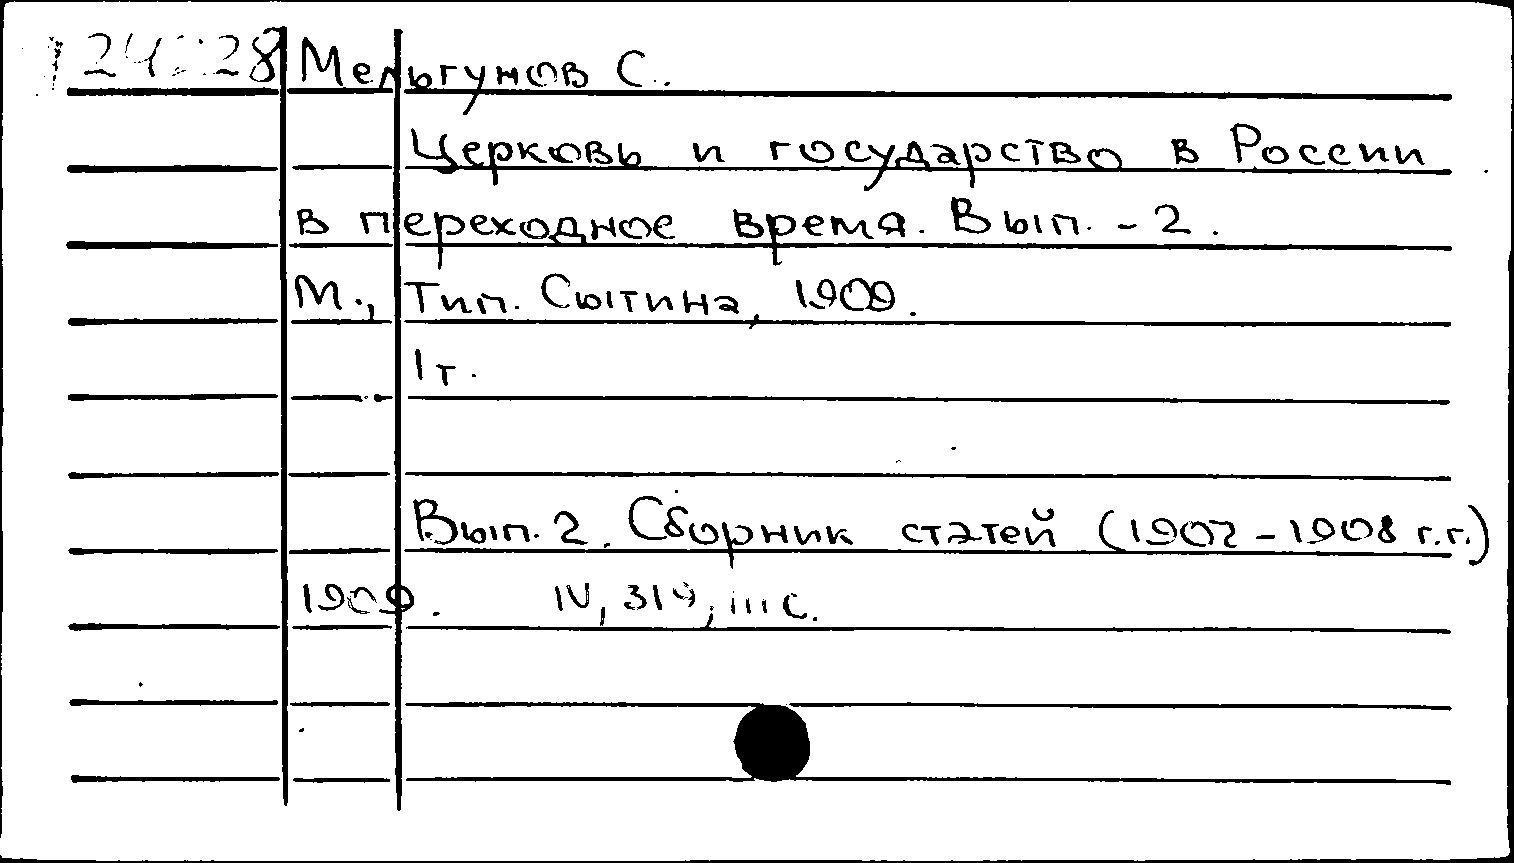 Мельгунов С.
Церковь и государство в России
в переходное время. Вып. - 2.
М., Тип. Сытина, 1909.
1 т.
Вып. 2. Сборник статей (1907 - 1908 г.г.)
1909. IV, 319, III с.